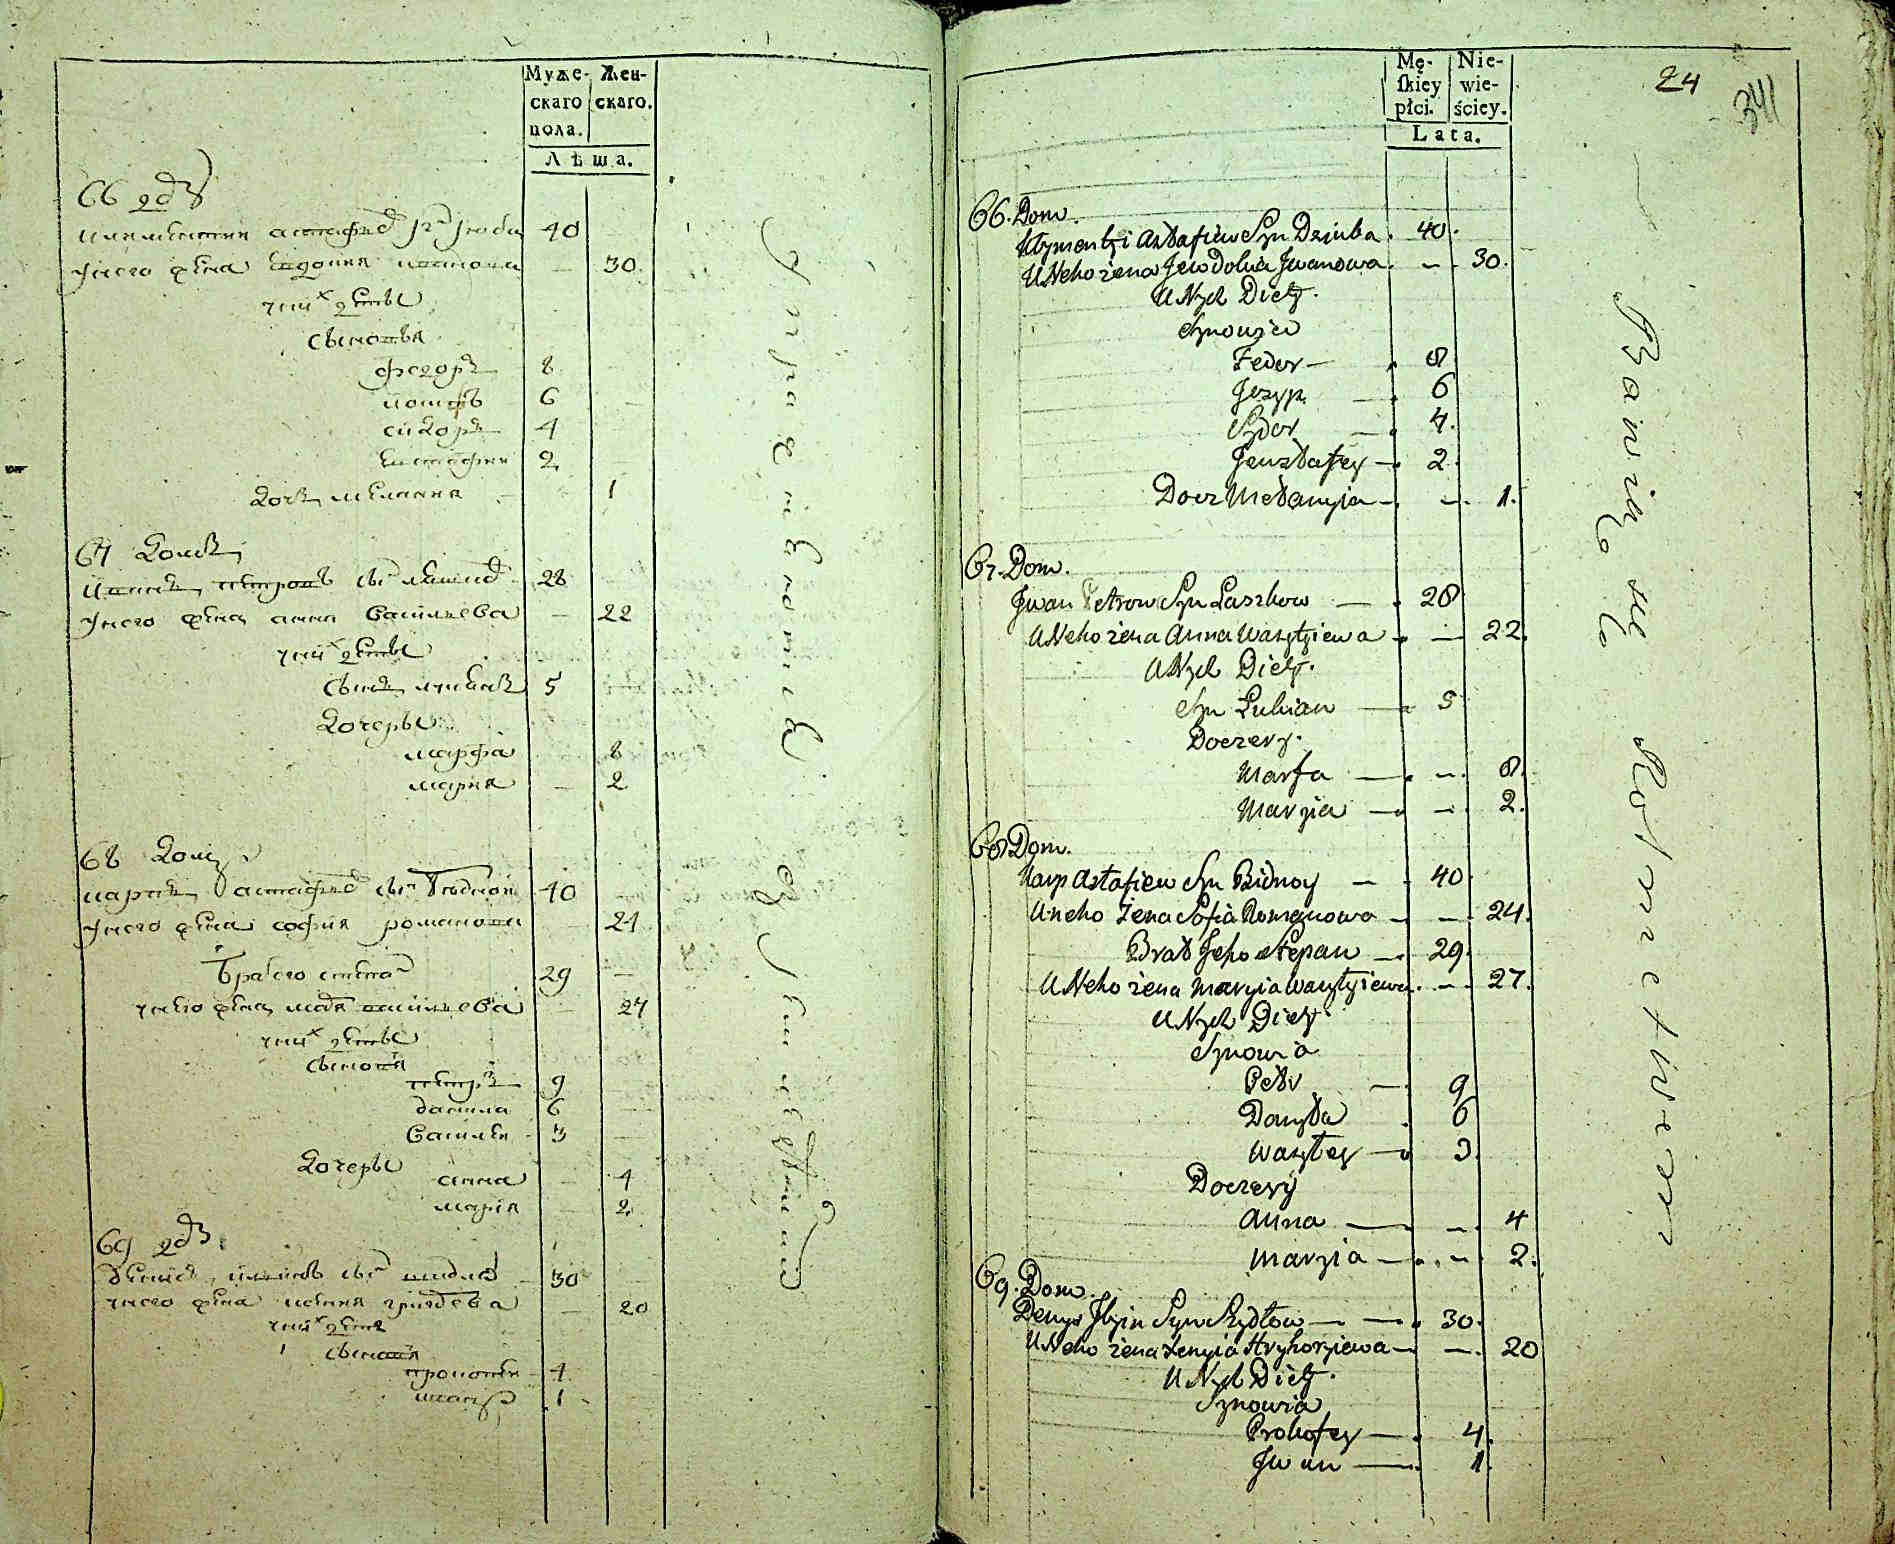 Муже-
скаго
пола.
Жен-
скаго.
Лѣта.
66 дв
40
у него жена Евдокия иванова 30
у них дети
сыновья
федоръ 8
иосифъ 6
сидоръ 4
евстафий 2
дочь мелания 1
67 домъ
иванъ петровъ сынъ 28
у него жена анна васильева 22
у них дети
сынъ лукианъ 5
дочеры
марфа 8
мария 2
68 домъ
карпъ астафиевъ сынъ бѣдной 40
у него жена софия романова 24
братъ его степанъ 29
у него жена марья васильева 27
у них дети
сыновья
петръ 9
данила 6
василей 3
дочеры
анна 4
мария 2
69 дв
денисъ ильинъ сынъ 30
у него жена ксения григорьева 20
у них дети
сыновья
прокофей 4
иванъ 1
упражняются
Mę-
ſkiey
płci.
Nie-
wie-
ściey.
Lata.
24
341
66. Dom.
Kłymentyi Astafiew Syn Dziuba 40.
U Neho żena Jewdokia Jwanowa 30.
U Nych Diety.
Synowia
Fedor 8
Jozyp 6
Sydor 4.
Jewstafey 2.
Docz Mełanyia 1.
67. Dom.
Jwan Petrow Syn Laszkow 28
U Neho żena Anna Wasylyiewa 22.
U Nych Diety.
Syn Lukian 5
Doczery.
Marfa 8.
Maryia 2.
68 Dom.
Karp Astafiew Syn Bidnoy 40.
U neho żena Sofia Romanowa 24.
Brat Jeho Stepan 29.
U Neho żena Maryia Wasylyiewa 27.
U Nych Diety
Synowia
Petr 9
Danyła 6
Wasyłey 3.
Doczery
Anna 4
Maryia 2.
69. Dom.
Denys Jlyin Syn Szydłow 30.
U Neho żena Xenyia Hryhoryiewa 20
U Nych Diety.
Synowia
Prokofey 4.
Jwan 1.
Bawią się Rolnictwem